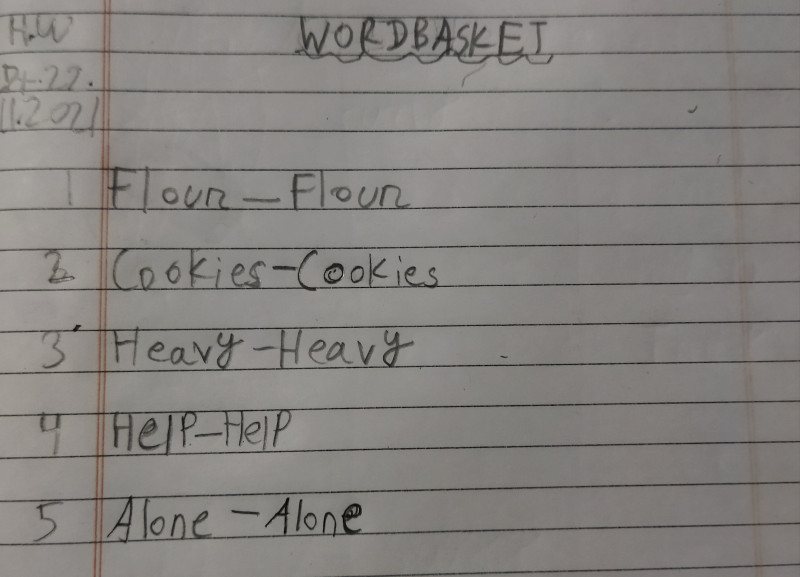 H.W WORDBASKET
Dt.22.
11.2021
1 Flour - Flour
2 Cookies - Cookies
3 Heavy - Heavy
4 Help - Help
5 Alone - Alone